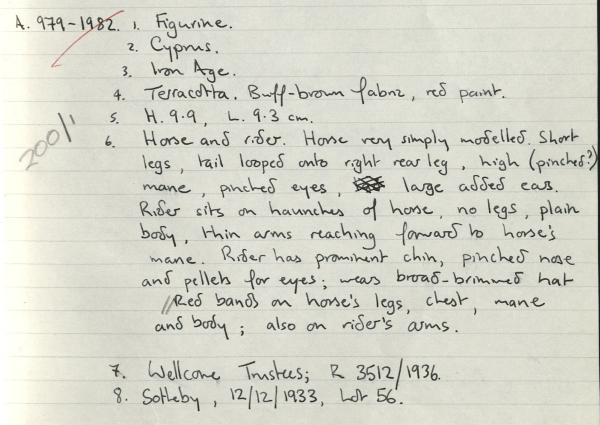 A. 979-1982. 1. Figurine.
2. Cyprus.
3. Iron Age.
4. Terracotta. Buff-brown fabric, red paint.
5. H. 9.9, L. 9.3 cm.
6. Horse and rider. Horse very simply modelled. Short
legs, tail looped onto right rear leg, high (pinched?)
mane, pinched eyes, large added ears.
Rider sits on haunches of horse, no legs, plain
body, thin arms reaching forward to horse's
mane. Rider has prominent chin, pinched nose
and pellets for eyes; wears broad-brimmed hat
//Red bands on horse's legs, chest, mane
and body; also on rider's arms.
7. Wellcome Trustees; R 3512/1936.
8. Sotheby, 12/12/1933, Lot 56.